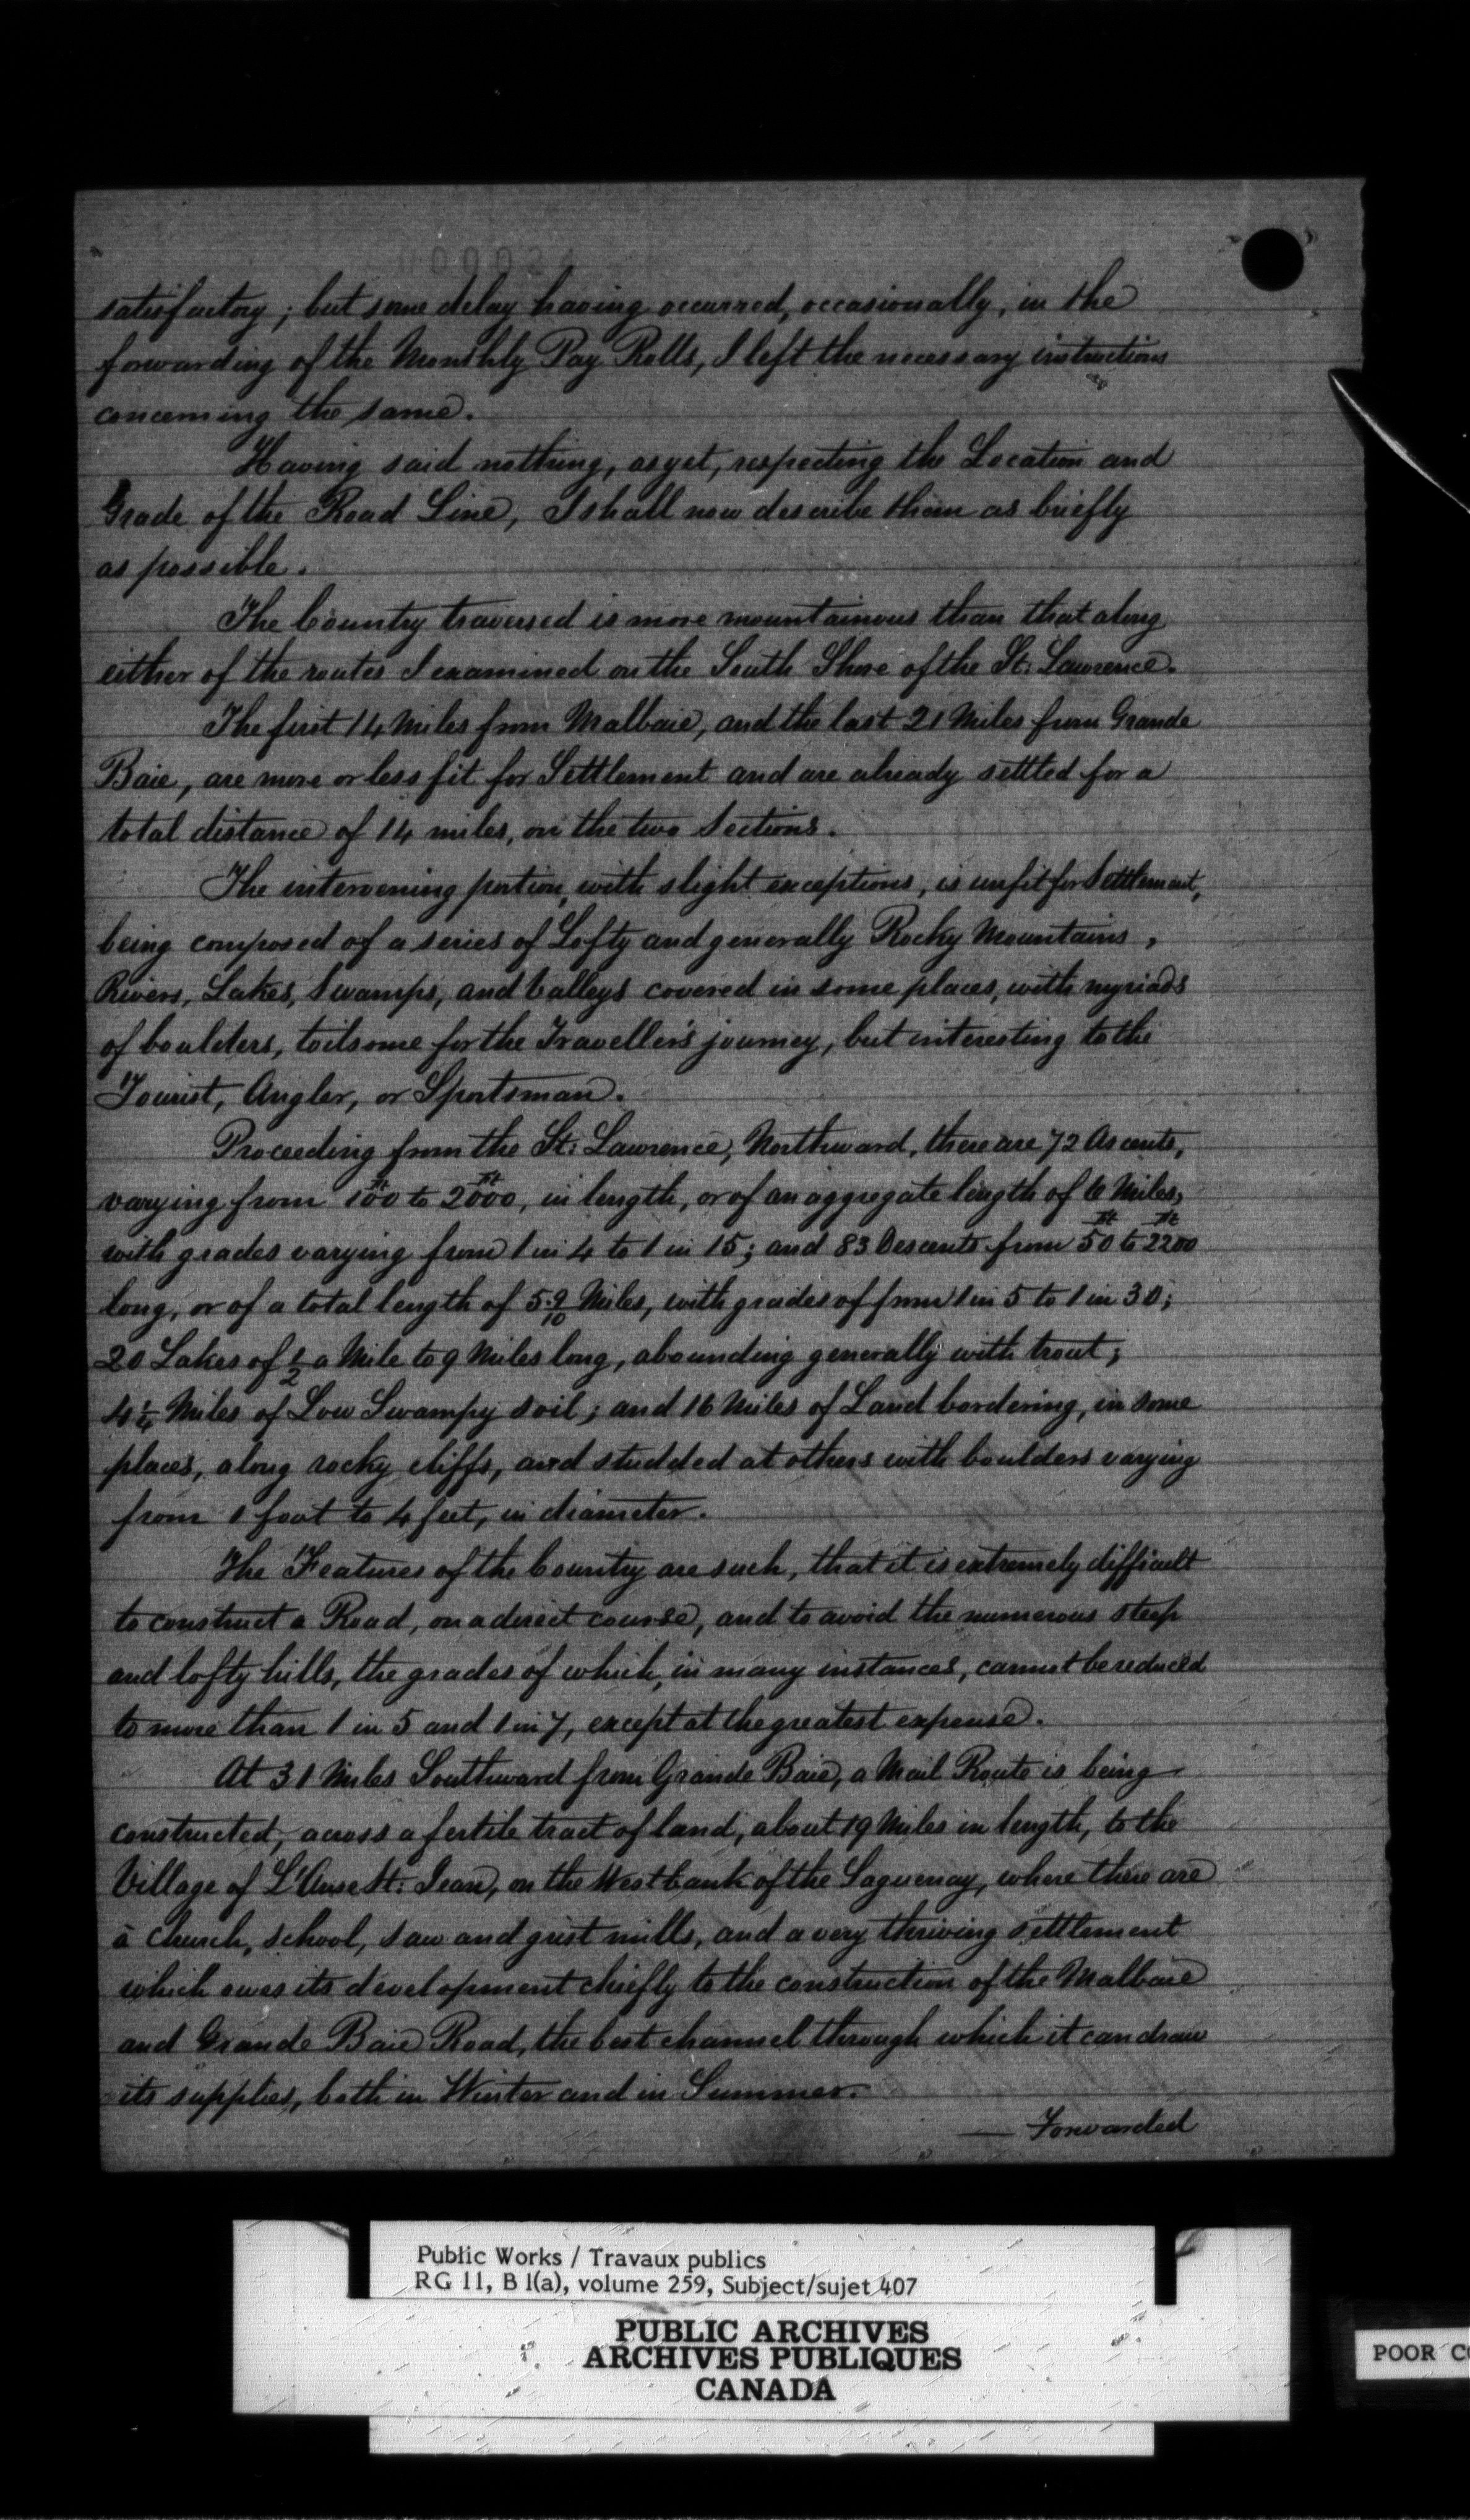 satisfactory; but some delay having occurred, occasionally, in the
forwarding of the Monthly Pay Rolls, I left the necessary instructions
concerning the same.
Having said nothing, as yet, respecting the Location and
Grade of the Road Line, I shall now describe them as briefly
as possible.
The Country traversed is more mountainous than that along
either of the routes I examined on the South Shore of the St: Lawrence.
The first 14 Miles from Malbaie, and the last 21 Miles from Grande
Baie, are more or less fit for Settlement and are already settled for a
total distance of 14 miles, on the two Sections.
The intervening portion, with slight exceptions, is unfit for Settlement,
being composed of a series of Lofty and generally Rocky Mountains,
Rivers, Lakes, Swamps, and Valleys covered in some places, with myriads
of boulders, toilsome for the Traveller's journey, but interesting to the
Tourist, Angler, or Sportsman.
Proceeding from the St: Lawrence, Northward, there are 72 Ascents,
varying from 100 ft to 2000 ft, in length, or of an aggregate length of 6 Miles,
with grades varying from 1 in 4 to 1 in 15; and 83 Descents from 50 ft to 2200 ft
long, or of a total length of 5 9/10 Miles, with grades of from 1 in 5 to 1 in 30;
20 Lakes of 1/2 a Mile to 9 Miles long, abounding generally with trout;
4 1/4 Miles of Low Swampy soil; and 16 Miles of Land bordering, in some
places, along rocky cliffs, and studded at others with boulders varying
from 1 foot to 4 feet, in diameter.
The Features of the Country are such, that it is extremely difficult
to construct a Road, on a direct course, and to avoid the numerous steep
and lofty hills, the grades of which, in many instances, cannot be reduced
to more than 1 in 5 and 1 in 7, except at the greatest expense.
At 31 Miles Southward from Grande Baie, a Mail Route is being
constructed, across a fertile tract of land, about 19 Miles in length, to the
Village of L'Anse St: Jean, on the West bank of the Saguenay, where there are
a church, school, saw and grist mills, and a very thriving settlement
which owes its development chiefly to the construction of the Malbaie
and Grande Baie Road, the best channel through which it can draw
its supplies, both in Winter and in Summer.
— Forwarded
Public Works / Travaux publics
RG 11, B 1(a), volume 259, Subject/sujet 407
PUBLIC ARCHIVES
ARCHIVES PUBLIQUES
CANADA
POOR